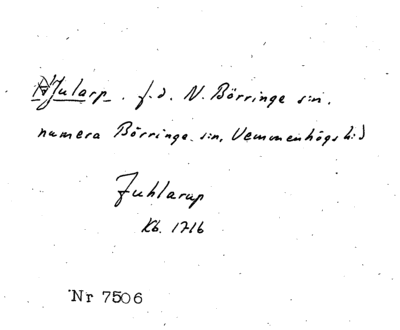 Jularp. f.d. N. Börringe s:n.
numera Börringe s:n, Vemmenhögs h:d
Juhlarup
Kb. 1716
Nr 7506